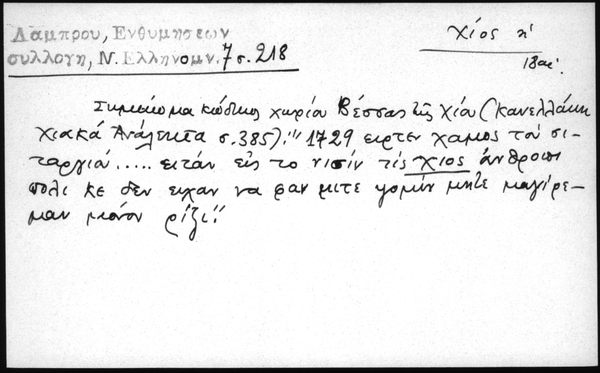 Λάμπρου, Ενθυμήσεων
συλλογη, Ν. Ελληνομν. 7 σ. 218
Χίος η'
18 αι.
Σημείωμα κώδικος χωρίου Βέσσας τῆς Χίου (Κανελλάκη
Χιακά Ανάλεκτα σ. 385): "1729 ειρτεν χαμος του σι-
ταργιά ..... ειτάν εἰς το νισίν τις Χιος ἀνθροπι
πολι κε δεν ειχαν να φαν μιτε ψομίν μητε μαγίρε-
μαν μιόνον ρίζι"